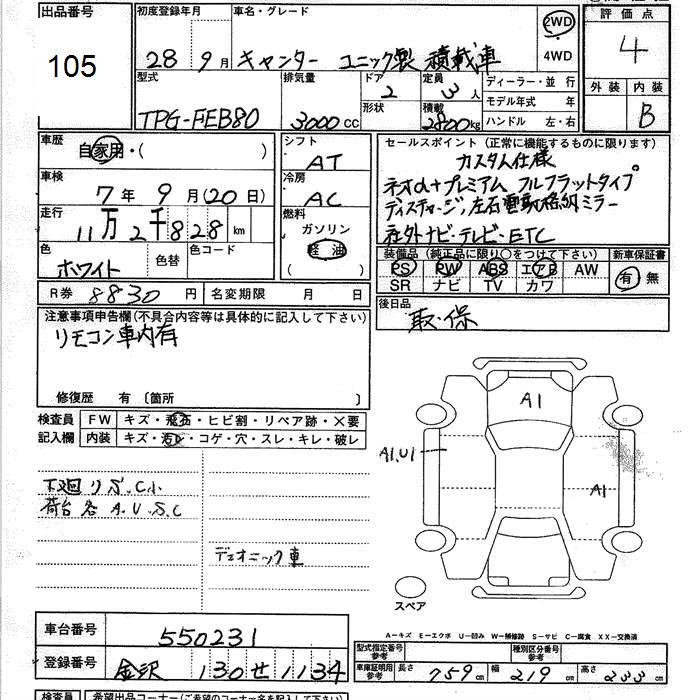 出品番号
105
初度登録年月
28 9月
車名・グレード
キャンター ユニック製 積載車
2WD
・
4WD
評価点
4
外装 内装
B
型式
TPG-FEB80
排気量
3000cc
ドア
2
形状
定員
3人
積載
2800kg
ディーラー・並 行
モデル年式 年
ハンドル 左・右
車歴
自家用・( )
車検
7年 9月(20日)
走行
11万2千828km
色
ホワイト
色替
色コード
シフト
AT
冷房
AC
燃料
ガソリン
軽 油
( )
セールスポイント(正常に機能するものに限ります)
カスタム仕様
ネオα+プレミアム フルフラットタイプ
ディスチャージ,左右電動格納ミラー
社外ナビ・テレビ・ETC
装備品(純正品に限り○をつけて下さい)
PS PW ABS エアB AW
SR ナビ TV カワ
新車保証書
有・無
R券 8830円
名変期限 月 日
後日品
取・保
注意事項申告欄(不具合内容等は具体的に記入して下さい)
リモコン車内有
修復歴 有 〔箇所 〕
検査員
記入欄
FW キズ・飛石・ヒビ割・リペア跡・×要
内装 キズ・汚レ・コゲ・穴・スレ・キレ・破レ
下廻りS.C小
荷台各A.U.S.C
デュオニック車
A1
A1,U1
A1
スペア
A-キズ E-エクボ U-凹み W-補修跡 S-サビ C-腐食 XX-交換済
車台番号
550231
登録番号
金沢 130せ1134
型式指定番号
参考
種別区分番号
参考
車庫証明用
参考
長さ 759cm 幅 219cm 高さ 233cm
検査員
希望出品コーナー(ご希望のコーナー名を記入下さい)